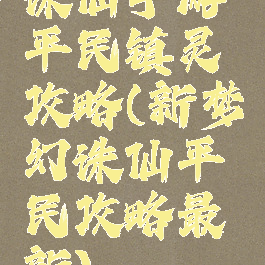 诛仙手游
平民镇灵
攻略(新梦
幻诛仙平
民攻略最
新)